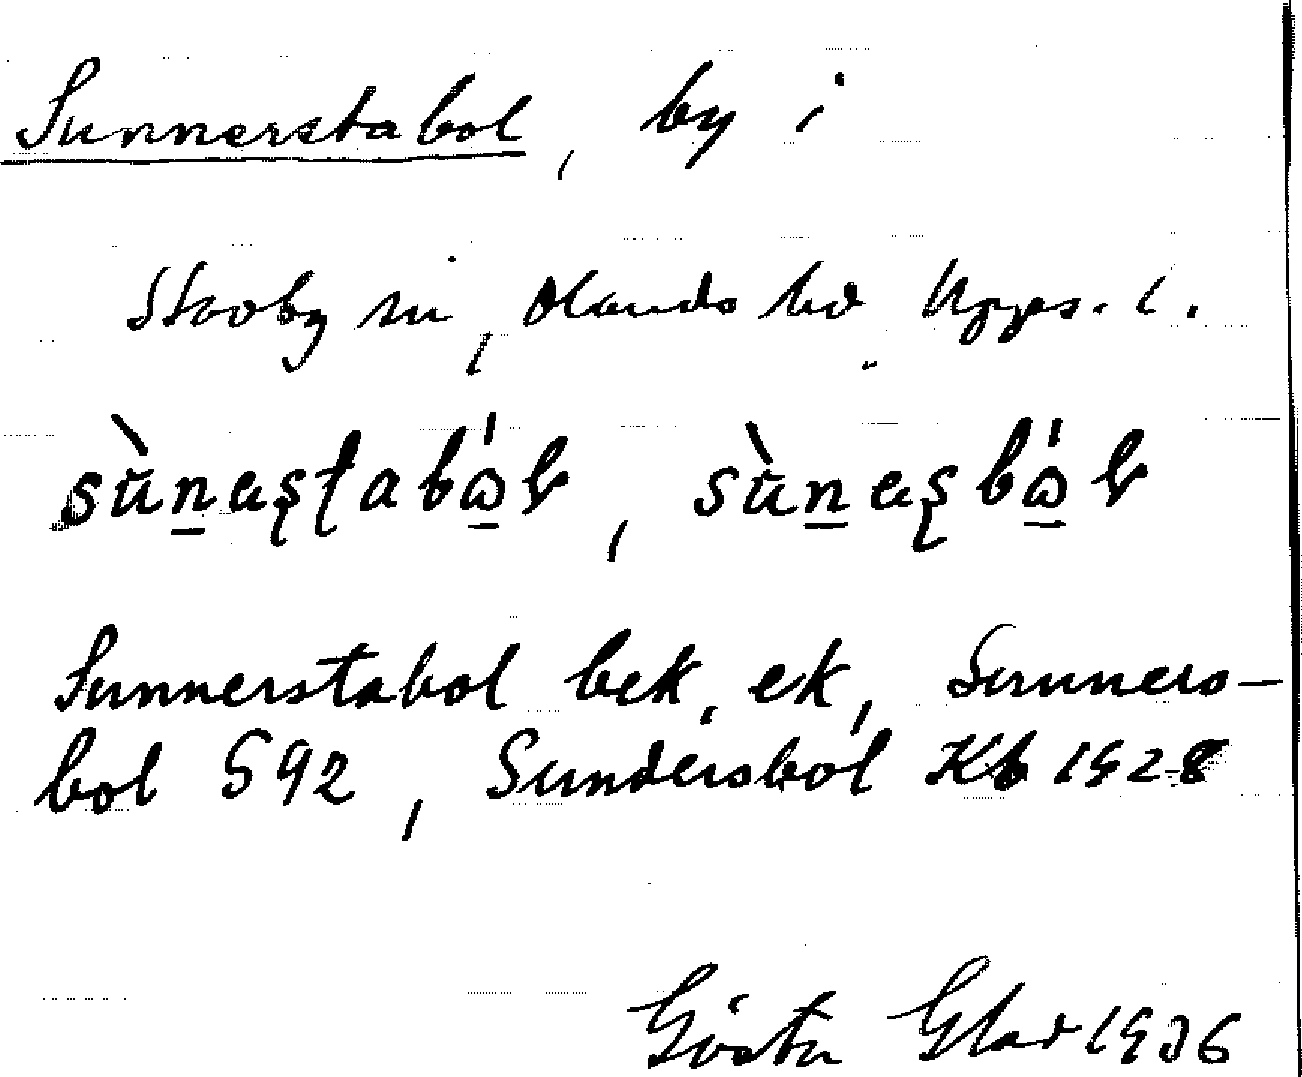 Sunnerstabol, by i
Skovby sn, Olands hd, Upps. l.
sùn̲aʂʈabώ̲ɽ, sùn̲aʂbώ̲ɽ
Sunnerstabol bek, ek, Sunners-
bol S92, Sundersbol Kb 1928
Gösta Glad 1936